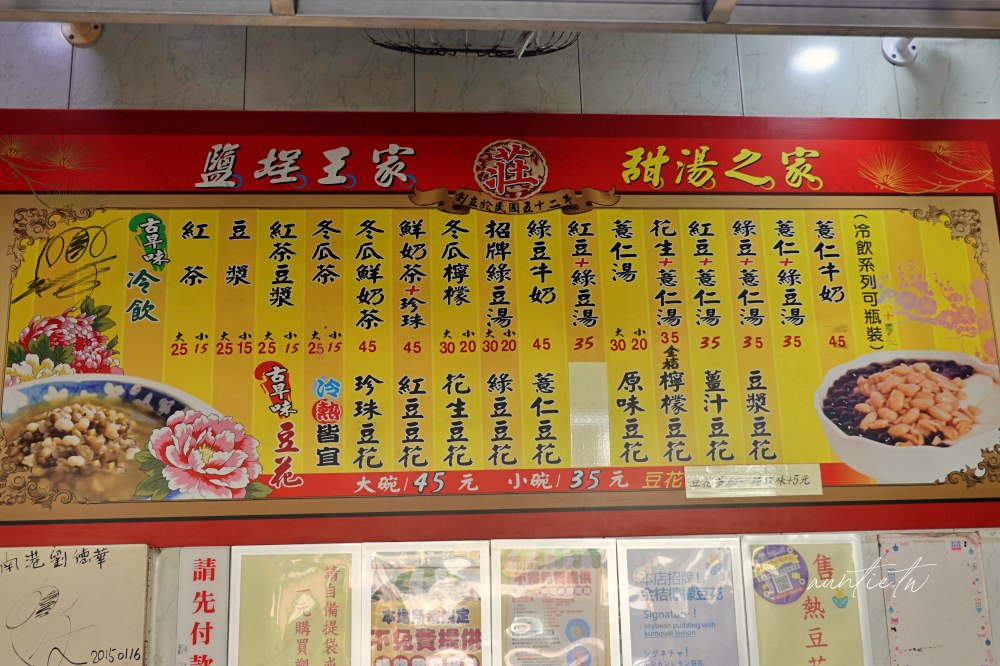 鹽埕王家
莊
創立於民國五十二年
甜湯之家
古早味
冷飲
紅茶
大25 小15
豆漿
大25 小15
紅茶豆漿
大25 小15
冬瓜茶
大25 小15
冬瓜鮮奶茶
45
鮮奶茶+珍珠
45
冬瓜檸檬
大30 小20
招牌綠豆湯
大30 小20
綠豆牛奶
45
紅豆+綠豆湯
35
薏仁湯
大30 小20
花生+薏仁湯
35
紅豆+薏仁湯
35
綠豆+薏仁湯
35
薏仁+綠豆湯
35
薏仁牛奶
45
(冷飲系列可瓶裝)
古早味
豆花
冷熱皆宜
珍珠豆花
紅豆豆花
花生豆花
綠豆豆花
薏仁豆花
原味豆花
金桔檸檬豆花
薑汁豆花
豆漿豆花
大碗/45元 小碗/35元 豆花
南港劉德華
20150116
請先付款
請自備提袋
一元購買塑
不免費提供
本店招牌!
金桔檸檬豆花
Signature!
soybean pudding with
kumquat lemon
シグネチャ!
售熱豆
auntie.tw